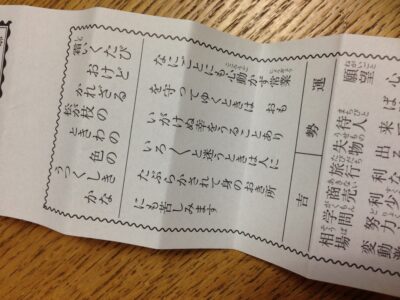 いたび
おけど
かれざる
松が枝の
ときわの色の
うつくしき
かな
運勢
吉
なにごとにも心動かず常業
を守ってゆくときは おも
いがけぬ幸をうることあり
いろ〱と迷うときは人に
たぶらかされて身のおき所
にも苦しみます
願望 心
待人 来
失物 出
旅行 利
商売 利 少
学問 努力
相場 変動